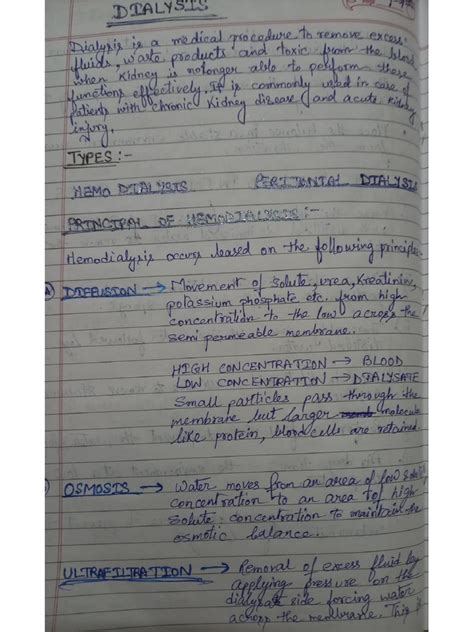 DIALYSIS
Dialysis is a medical procedure to remove excess
fluids, waste products and toxic from the blood
when kidney is nolonger able to perform these
functions effectively. It is commonly used in case of
patients with chronic kidney disease and acute kidney
injury.
TYPES :-
HEMO DIALYSIS PERITONIAL DIALYSIS
PRINCIPAL OF HEMODIALYSIS :-
Hemodialysis occurs based on the following principles
DIFFUSION → Movement of solute, urea, Kreatinine,
potassium phosphate etc. from high
concentration to the low across the
semi permeable membrane.
HIGH CONCENTRATION → BLOOD
LOW CONCENTRATION → DIALYSATE
Small particles pass through the
membrane but larger molecule
like protein, blood cells are retained
OSMOSIS → Water moves from an area of low solute
concentration to an area of high
solute concentration to maintain the
osmotic balance.
ULTRAFILTRATION → Removal of excess fluid by
applying pressure on the
dialysate side forcing water
across the membrane. This is